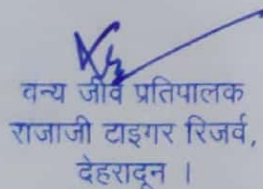 वन्य जीव प्रतिपालक
राजाजी टाइगर रिजर्व,
देहरादून ।